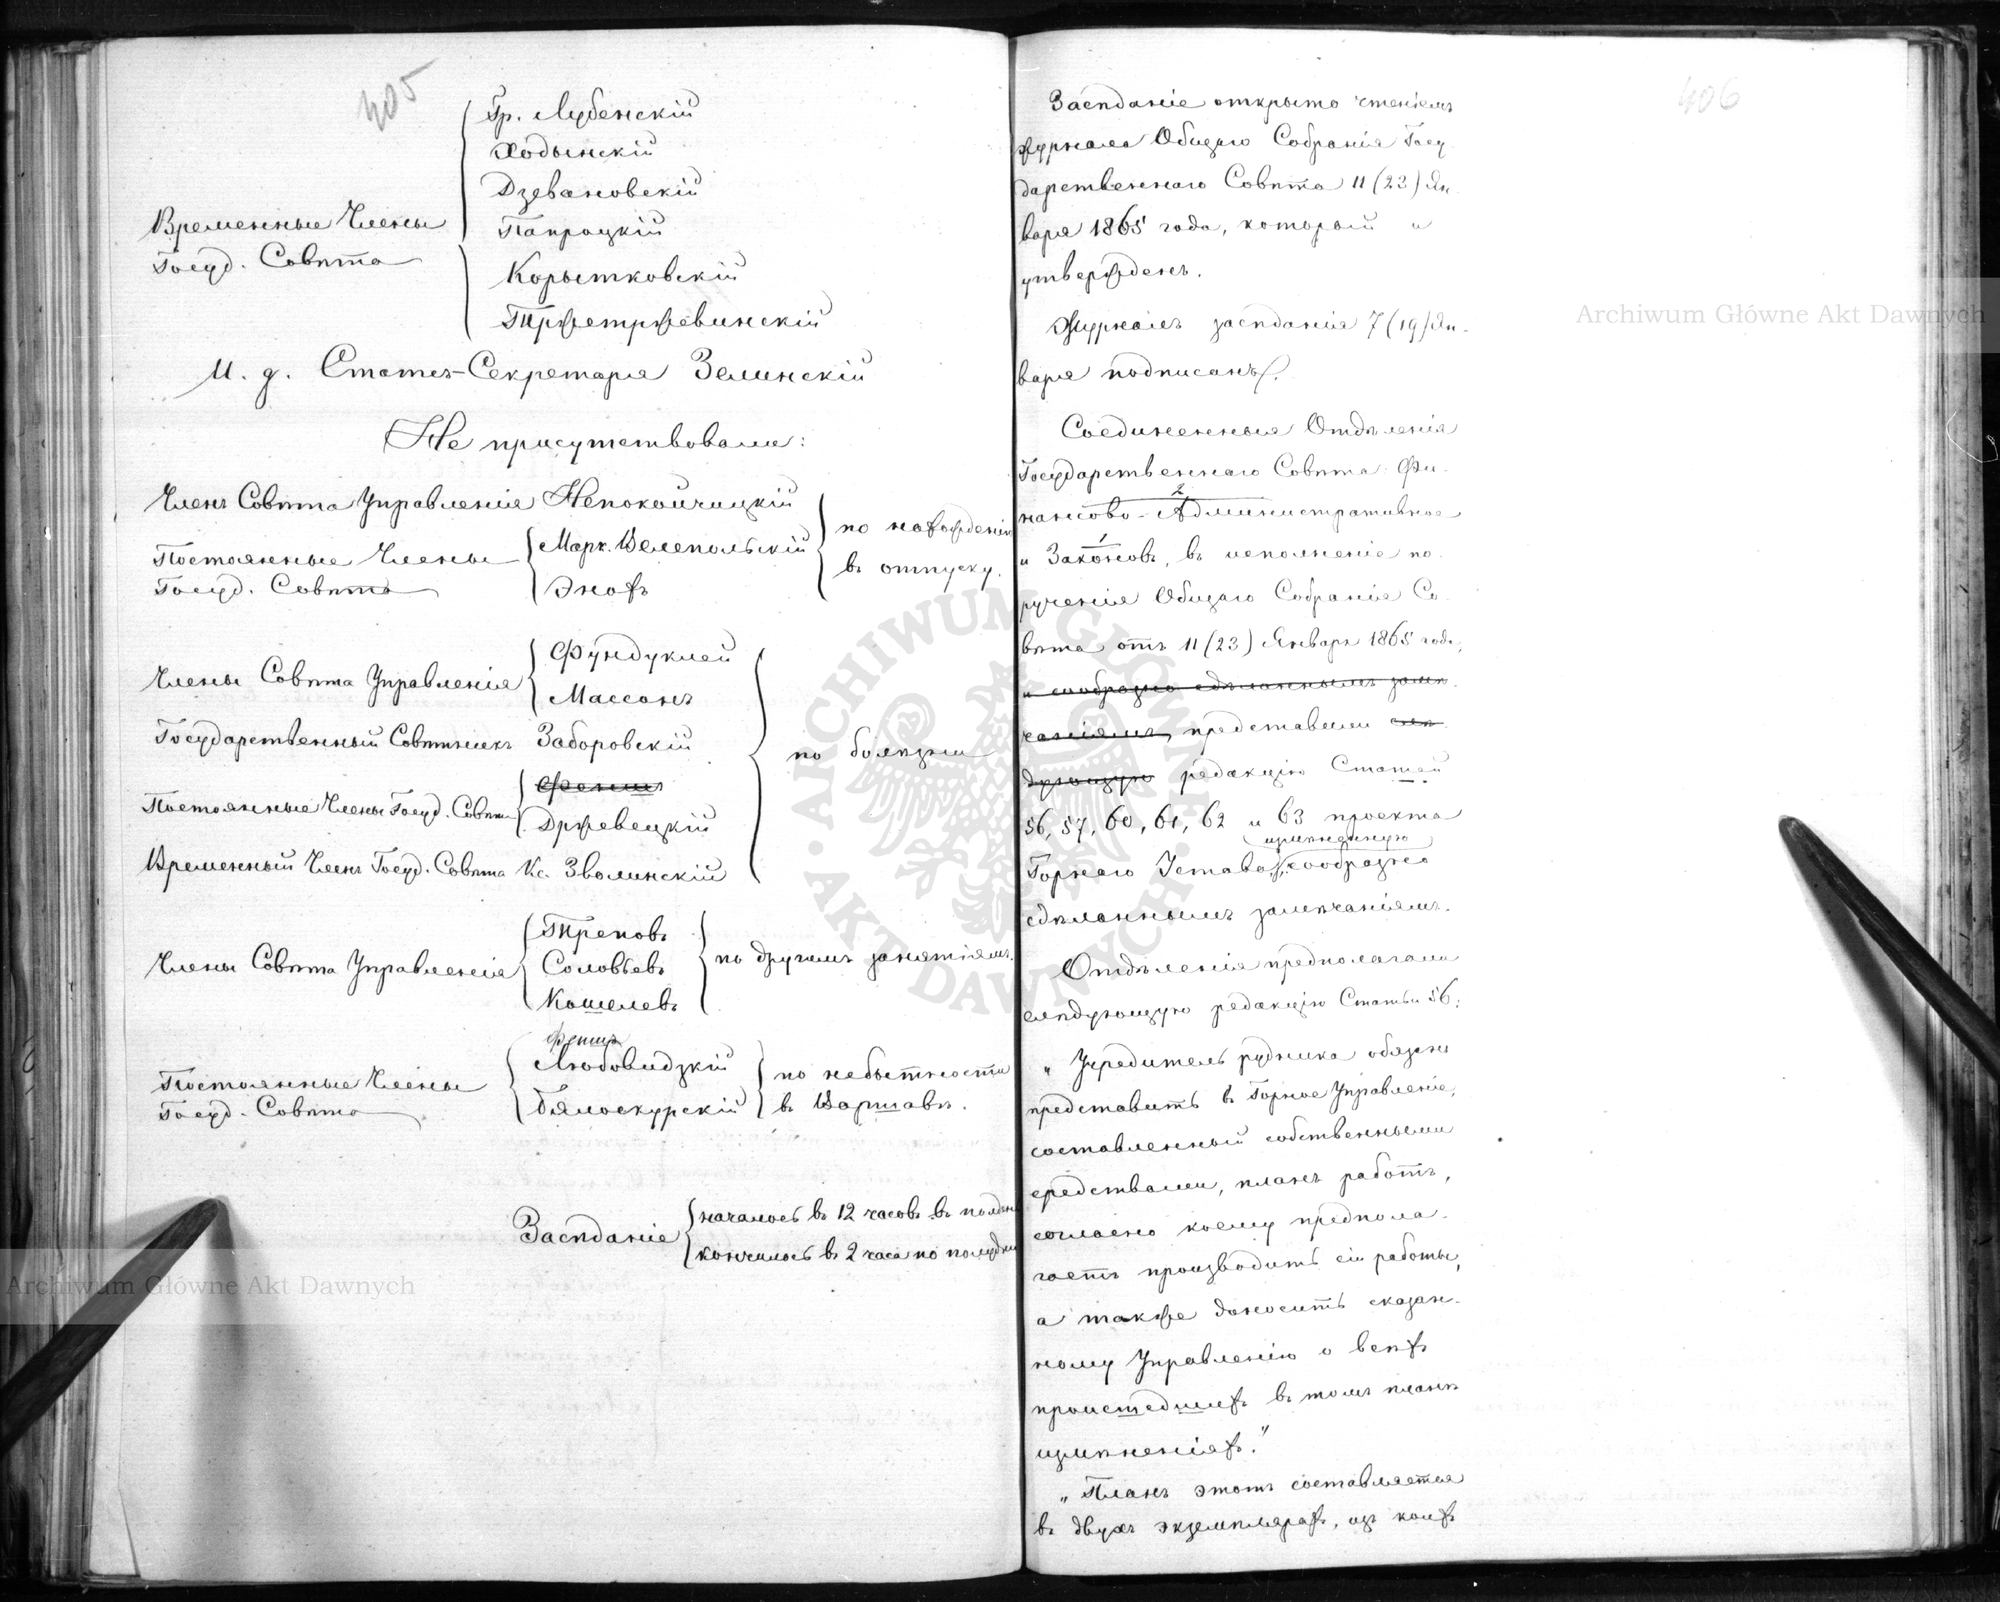 405
Временные Члены
Госуд. Совѣта
Гр. Лубенскій
Ходынскій
Дзевановскій
Папроцкій
Корытковскій
Тржетржевинскій
И. д. Статсъ-Секретаря Зелинскій
Не присутствовали:
Членъ Совѣта Управленія Непокойчицкій
Постоянные Члены
Госуд. Совѣта
Марк. Велепольскій
Энохъ
по нахожденію
въ отпуску.
Члены Совѣта Управленія
Фундуклей
Массонъ
Государственный Совѣтникъ Заборовскій
Постоянные Члены Госуд. Совѣта
Феншъ
Држевецкій
Временный Членъ Госуд. Совѣта Кс. Зволинскій
по болѣзни
Члены Совѣта Управленія
Треповъ
Соловьевъ
Кошелевъ
по другимъ занятіямъ.
Постоянные Члены
Госуд. Совѣта
Феншъ
Любовидзкій
Бялоскурскій
по небытности
въ Варшавѣ.
Засѣданіе
началось въ 12 часовъ въ полдень
кончилось въ 2 часа по полудни
406
Засѣданіе открыто чтеніемъ
журнала Общаго Собранія Госу
дарственнаго Совѣта 11 (23) Ян-
варя 1865 года, который и
утвержденъ.
Журналъ засѣданія 7 (19) Ян-
варя подписанъ.
Соединенныя Отдѣленія
Государственнаго Совѣта: Фи-
2
нансово-Административное
1
и Законовъ, въ исполненіе по-
рученія Общаго Собранія Со-
вѣта отъ 11 (23) Января 1865 года,
и сообразно сдѣланнымъ замѣ-
чаніямъ, представили слѣ-
дующую редакцію Статей
56, 57, 60, 61, 62 и 63 проекта
измѣненную
Горнаго Устава, сообразно
сдѣланнымъ замѣчаніямъ.
Отдѣленія предполагали
слѣдующую редакцію Статьи 56:
„Учредитель рудника обязанъ
представить въ Горное Управленіе,
составленный собственными
средствами, планъ работъ,
согласно коему предпола-
гаетъ производить сіи работы,
а также доносить сказан-
ному Управленію о всѣхъ
происшедшихъ въ томъ планѣ
измѣненіяхъ."
„Планъ этотъ составляется
въ двухъ экземплярахъ, изъ коихъ
Archiwum Główne Akt Dawnych
Archiwum Główne Akt Dawnych
ARCHIWUM GŁÓWNE · AKT DAWNYCH ·